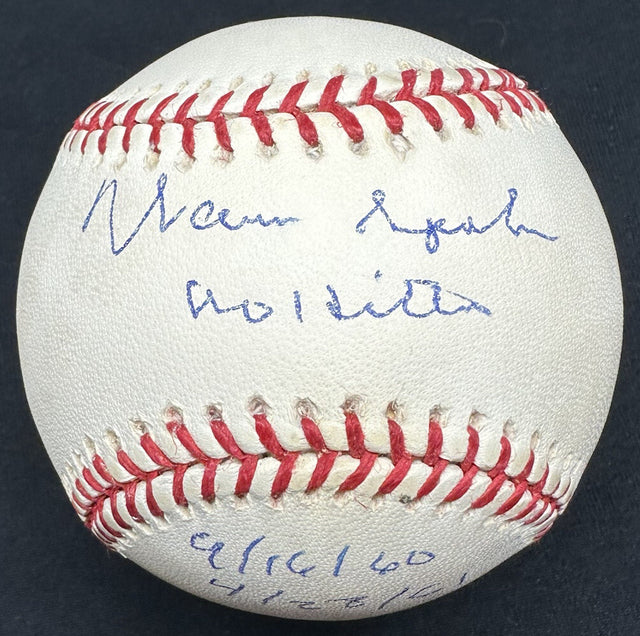 Warren Spahn
No Hitters
9/16/60
4/28/61